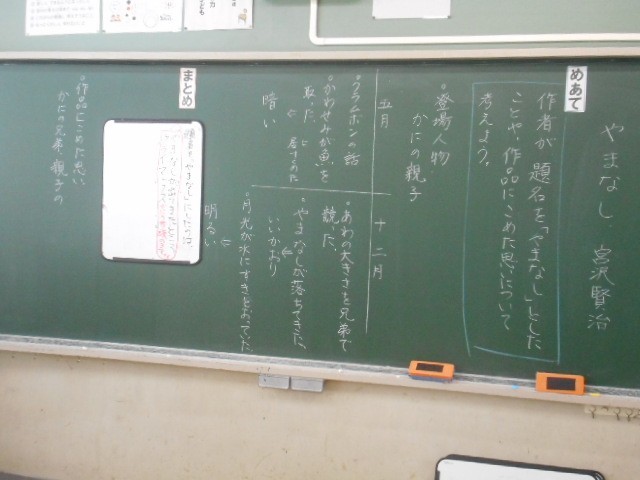 やまなし 宮沢賢治
めあて
作者が題名を「やまなし」とした
ことや、作品にこめた思いについて
考えよう。
・登場人物
かにの親子
五月
・クラムボンの話
・かわせみが魚を
取った。
暗い
十二月
・あわの大きさを兄弟で
競った。
・やまなしが落ちてきた。
いいかおり
・月光が水にすきとおっていた
明るい
まとめ
題名を「やまなし」にしたのは、
・作品にこめた思い
かにの兄弟、親子の